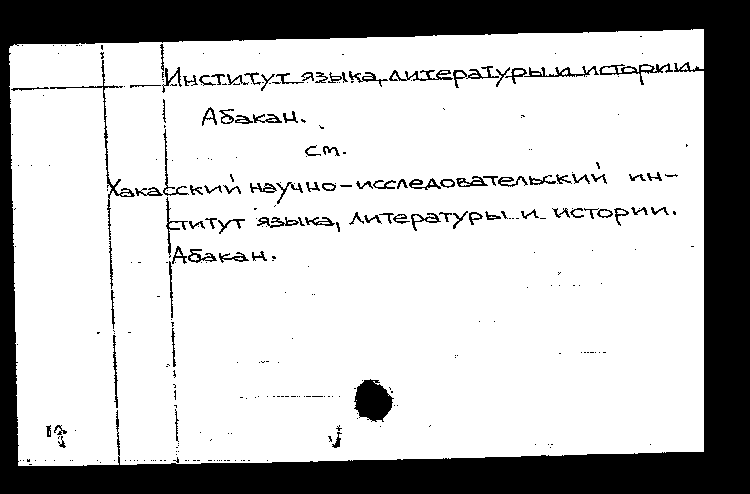 Институт языка, литературы и истории.
Абакан.
см.
Хакасский научно-исследовательский ин-
ститут языка, литературы и истории.
Абакан.